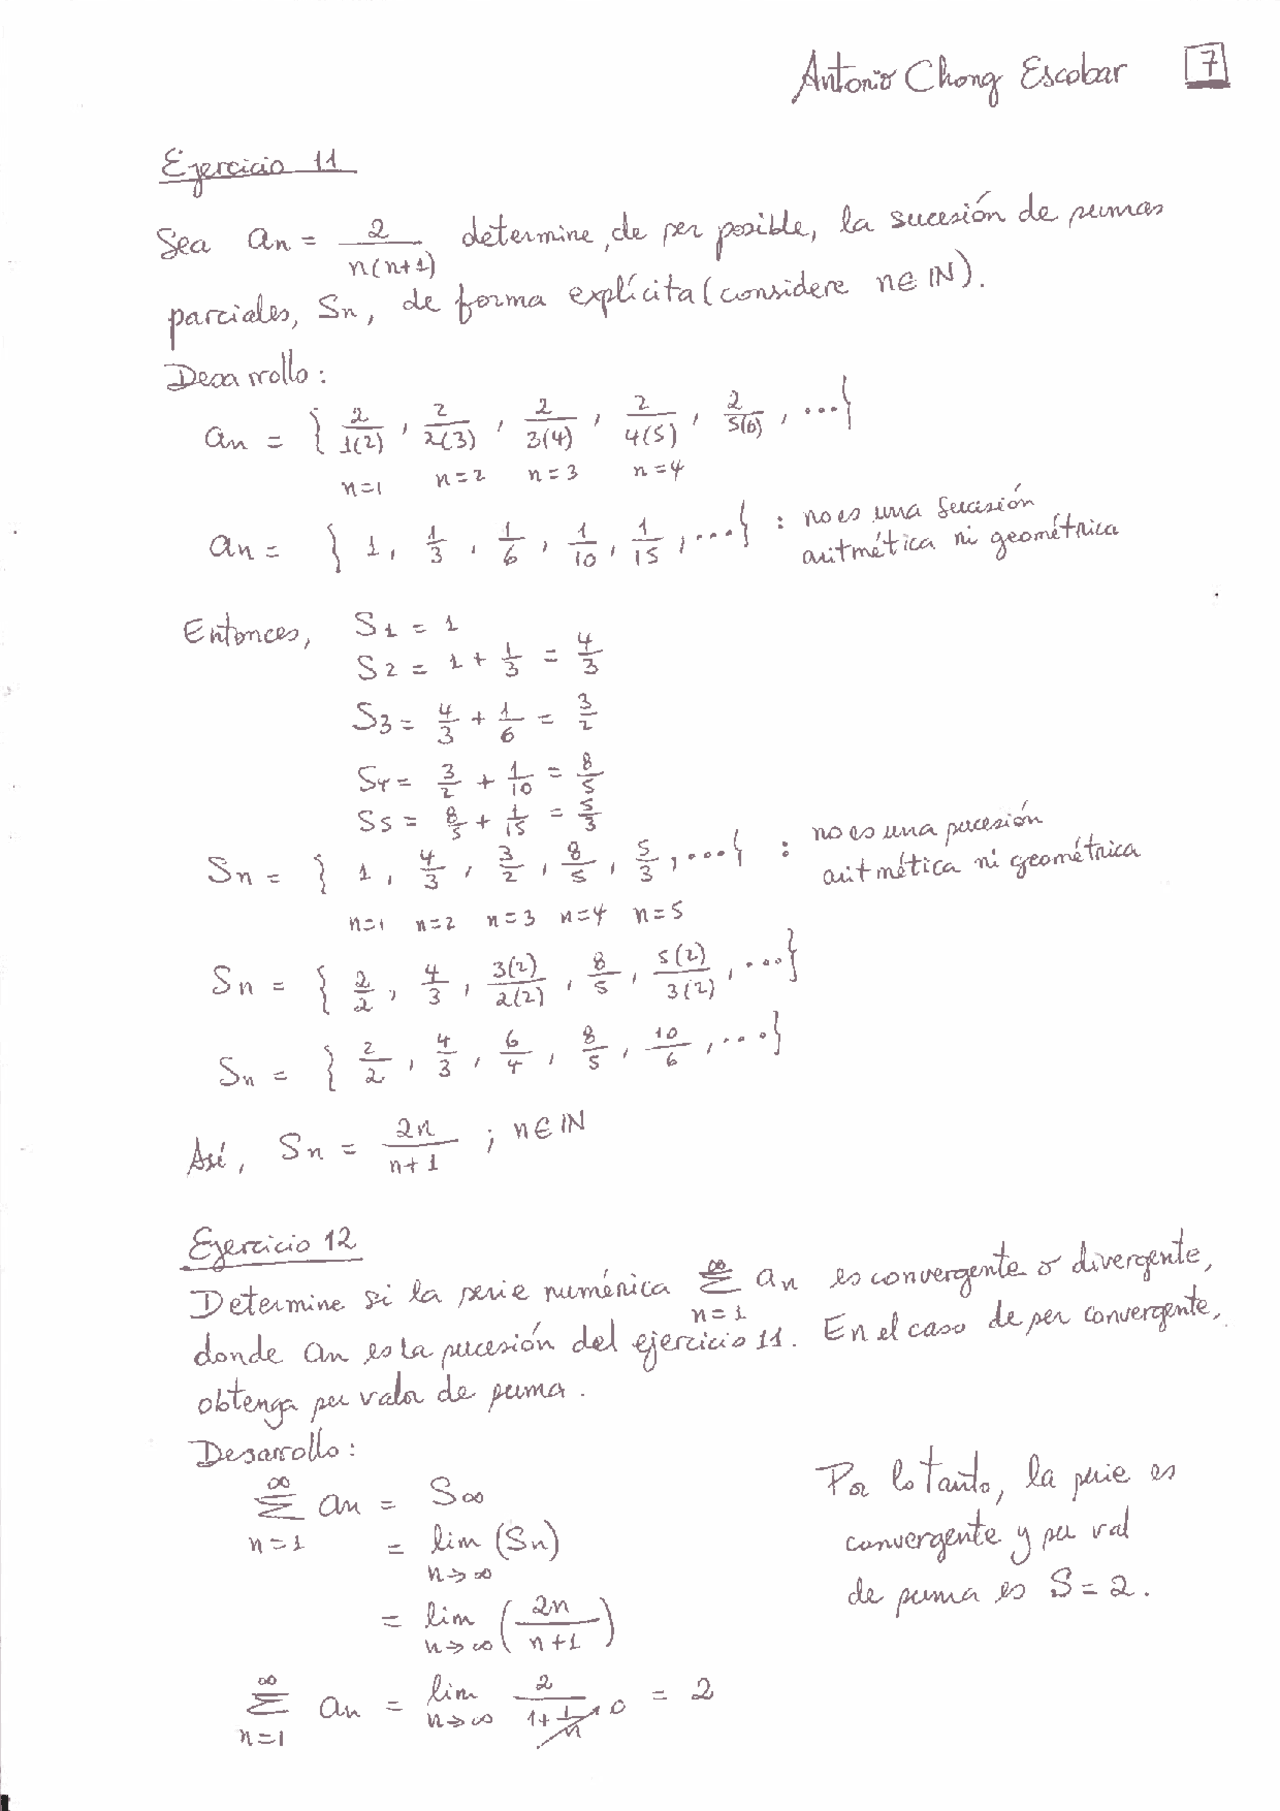 Antonio Chong Escobar 7
Ejercicio 11
Sea an = 2/(n(n+1)) determine, de ser posible, la sucesión de sumas
parciales, Sn, de forma explícita (considere n∈IN).
Desarrollo:
an = { 2/1(2), 2/2(3), 2/3(4), 2/4(5), 2/5(6), ...}
n=1 n=2 n=3 n=4
an = { 1, 1/3, 1/6, 1/10, 1/15, ...} : no es una sucesión
aritmética ni geométrica
Entonces, S1 = 1
S2 = 1 + 1/3 = 4/3
S3 = 4/3 + 1/6 = 3/2
S4 = 3/2 + 1/10 = 8/5
S5 = 8/5 + 1/15 = 5/3
Sn = { 1, 4/3, 3/2, 8/5, 5/3, ...} : no es una sucesión
aritmética ni geométrica
n=1 n=2 n=3 n=4 n=5
Sn = { 2/2, 4/3, 3(2)/2(2), 8/5, 5(2)/3(2), ...}
Sn = { 2/2, 4/3, 6/4, 8/5, 10/6, ...}
Así, Sn = 2n/(n+1) ; n∈IN
Ejercicio 12
Determine si la serie numérica ∞ Σ n=1 an es convergente o divergente,
donde an es la sucesión del ejercicio 11. En el caso de ser convergente,
obtenga su valor de suma.
Desarrollo:
∞ Σ n=1 an = S∞
= lim n→∞ (Sn)
= lim n→∞ (2n/(n+1))
∞ Σ n=1 an = lim n→∞ 2/(1+1/n) 0 = 2
Por lo tanto, la serie es
convergente y su val
de suma es S=2.